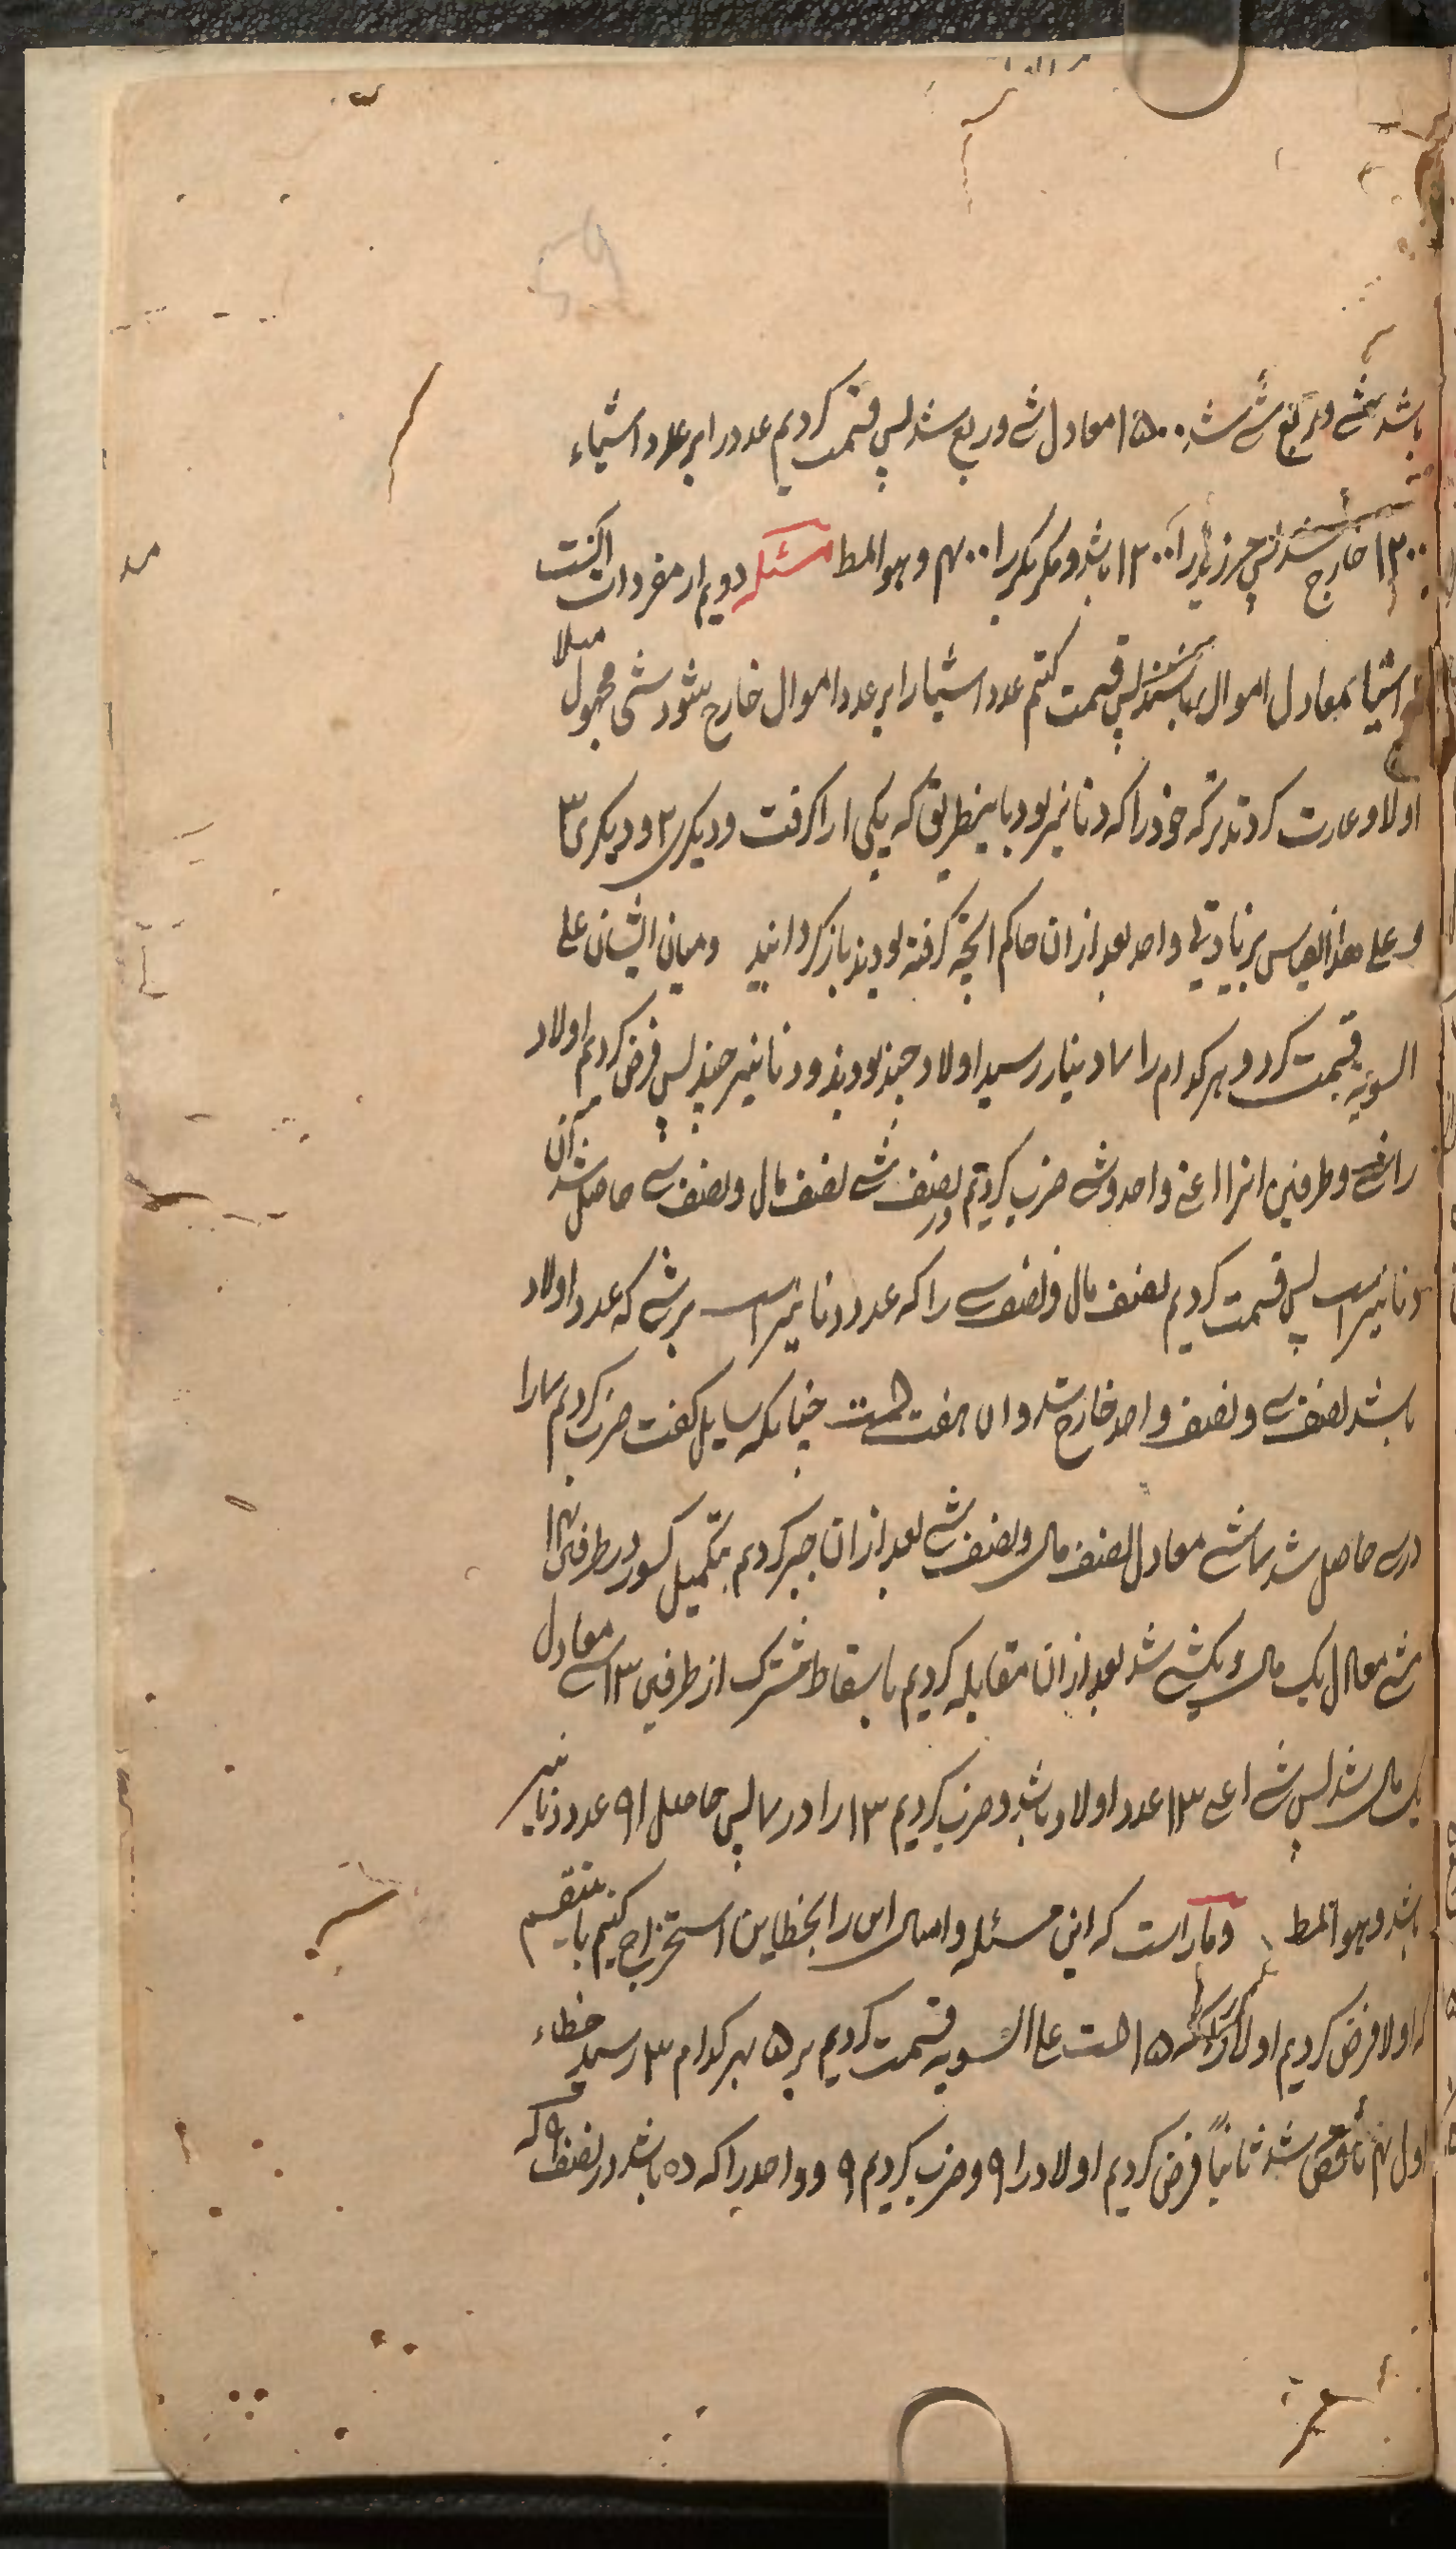 باشد شئ و ربع شئ شد ۱۵۰۰ معادل شے و ربع شد پس قسمت کردیم عدد را بر عدد اشیاء
۱۲۰۰ خارج شد پس زید را ۱۲۰۰ باشد و مر بکر را ۴۰۰ و هو المط مسئله دویم از مفردات انکست
اشیاء معادل اموال باشند پس قسمت کنم عدد اشیا را بر عدد اموال خارج شود شی مجهول مثلا
اولاد غارت کردند ترکه خود را که دنانیر بود باینطریق که یکی ۱ را گرفت و دیگری ۲ و دیگری ۳
و علی هذا القیاس بزیادتی واحد بعد ازان حاکم آنچه گرفته بودند باز گردانید و میان ایشان علی
السویه قسمت کرد و هر کدام را ۷ دینار رسید اولاد چند بودند و دنانیر چند پس فرض کردیم اولاد
را شے و طرفین انرا اعنی واحد و شے ضرب کردیم در نصف شے نصف مال و نصف شے حاصل شد ان
دنانیر است پس قسمت کردیم نصف مال و نصف شے را که عدد دنانیر است بر شے که عدد اولاد
باشد نصف شے و نصف واحد خارج شد و ان هفت است چنانکه سایل گفت ضرب کردیم ۷ را
در شے حاصل شد ۷ شے معادل نصف مال و نصف شے بعد ازان جبر کردیم بتکمیل کسور در طرفین ۱۴
شے معادل یک مال و یکشے شد بعد ازان مقابله کردیم باسقاط مشترک از طرفین ۱۳ شے معادل
یک مال شد پس شے اعنی ۱۳ عدد اولاد باشد و ضرب کردیم ۱۳ را در ۷ پس حاصل ۹۱ عدد دنانیر
باشد و هو المط و ما را است که این مسئله و امثال این را بخطاین استخراج کنیم باینقسم
که اولا فرض کردیم اولاد ۱۵ است علی السویه قسمت کردیم بر ۵ بهر کدام ۳ رسید خطاء
اول ۴ ناقص شد ثانیاً فرض کردیم اولاد را ۹ و ضرب کردیم ۹ و واحد را که ده باشد در نصف ۹ که